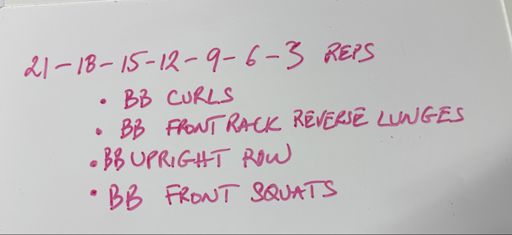 21-18-15-12-9-6-3 REPS
• BB CURLS
• BB FRONT RACK REVERSE LUNGES
• BB UPRIGHT ROW
• BB FRONT SQUATS